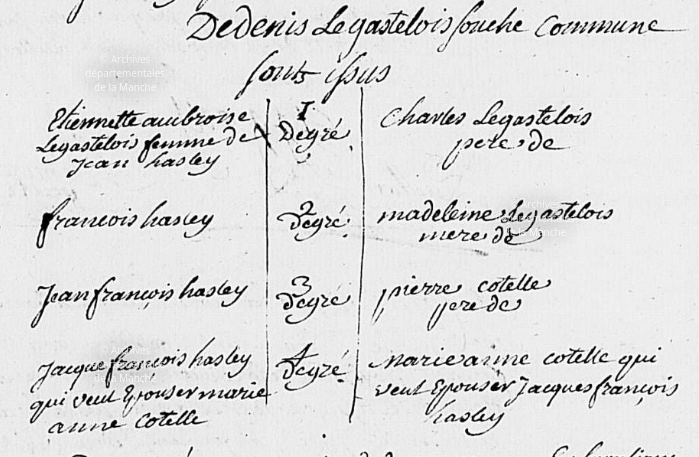 Dedenis Legastelois souche Commune
sont issus
Etiennette ambroise
Legastelois femme de
Jean hasley
1
Degré
Charles Legastelois
pere de
francois hasley
2
degré
madeleine Legastelois
mere de
Jean françois hasley
3
degré
pierre cotelle
pere de
Jacque francois hasley
qui veut Epouser marie
anne cotelle
4
degré
Marie anne cotelle qui
veut Epouser Jacques françois
hasley
© Archives
départementales
de la Manche